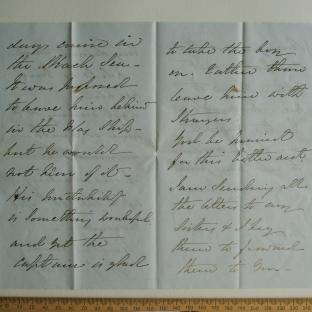 days cruise in
the Black Sea -
It was proposed
to leave him behind
in the Hos Ship -
but he would
not hear of it -
His
is something wonderful
and yet the
captain is glad
to take the boy
on. Rather than
leave him with
Strangers
God be praised
for this
I am sending all
the letters to my
Sisters & I beg
them to forward
them to you -